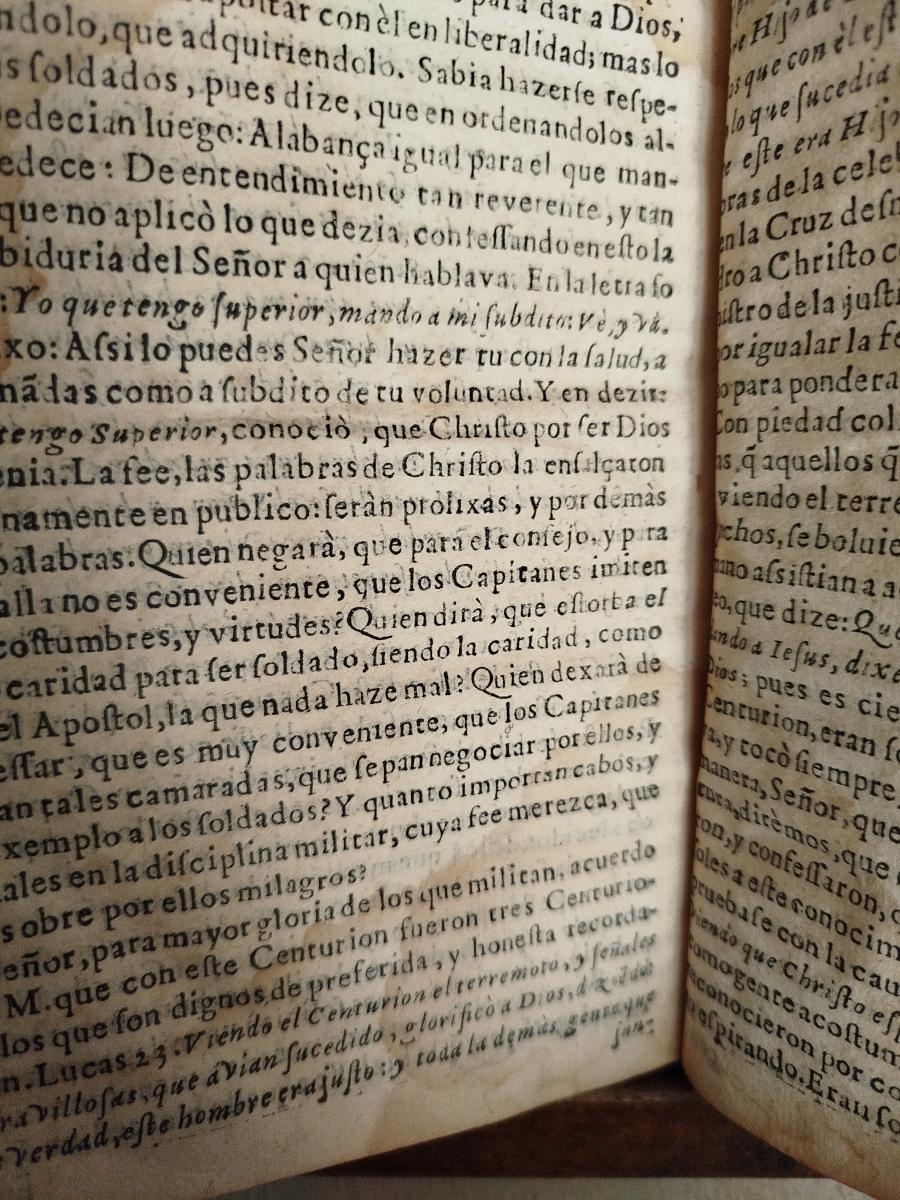 para dar a Dios;
con èl en liberalidad; mas lo
ndolo, que adquiriendolo. Sabia hazerſe reſpe-
s ſoldados, pues dize, que en ordenandolos al-
edecian luego: Alabança igual para el que man-
edece: De entendimiento tan reverente, y tan
que no aplicò lo que dezia, confeſſando en eſto la
biduria del Señor a quien hablava. En la letra ſo
: Yo que tengo ſuperior, mando a mi ſubdito: Vè, y và.
xo: Aſsi lo puedes Señor hazer tu con la ſalud, a
nādas como a ſubdito de tu voluntad. Y en dezir:
tengo Superior, conociò, que Chriſto por ſer Dios
enia. La fee, las palabras de Chriſto la enſalçaron
namente en publico: ſeràn prolixas, y por demàs
palabras. Quien negarà, que para el conſejo, y para
alla no es conveniente, que los Capitanes imiten
coſtumbres, y virtudes? Quien dirà, que eſtorba el
caridad para ſer ſoldado, ſiendo la caridad, como
el Apoſtol, la que nada haze mal? Quien dexarà de
eſſar, que es muy conveniente, que los Capitanes
an tales camaradas, que ſepan negociar por ellos, y
xemplo a los ſoldados? Y quanto importan cabos, y
ales en la diſciplina militar, cuya fee merezca, que
s obre por ellos milagros?
eñor, para mayor gloria de los que militan, acuerdo
M. que con eſte Centurion fueron tres Centurio-
los que ſon dignos de preferida, y honeſta recorda-
n. Lucas 23. Viendo el Centurion el terremoto, y ſeñales
ravilloſas, que avian ſucedido, glorificò a Dios,
verdad, eſte hombre era juſto: y toda la demàs gente que
jun-
e Hijo de
os que con èl eſt
lo que ſucedia
e eſte era Hijo
bras de la cele
en la Cruz de
dro a Chriſto c
iſtro de la juſti
or igualar la fe
o para pondera
Con piedad col
as, q̃ aquellos q̃
viendo el terre
chos, ſe bolvie
mo aſsiſtian a
eo, que dize: Qu
ando a Ieſus, dixe
Dios; pues es cie
Centurion, eran ſo
a, y tocò ſiempre
manera, Señor, que
tura, dirèmos, que
ron, y confeſſaron,
oles a eſte conocim
pruebaſe con la cau
Viendo que Chriſto eſp
omo gente acoſtum
econocieron por co
eſpirando. Eran ſo